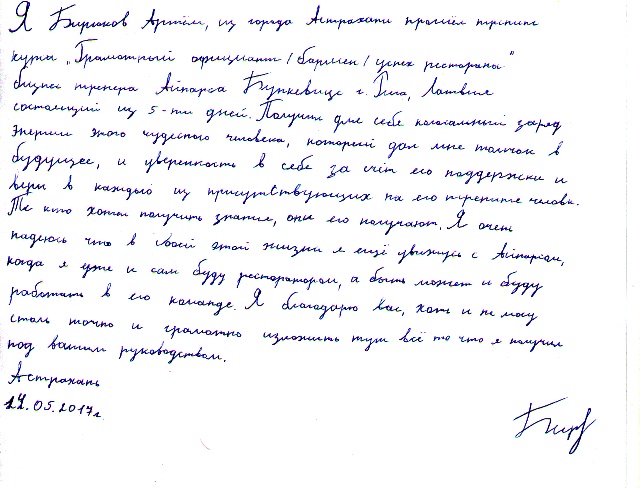 Я Бирюков Артём, из города Астрахани прошёл тренинг
курсы „Грамотный официант / бармен / успех ресторана"
бизнес тренера Айнарса Бункевица г. Рига, Латвия
состоящий из 5-ти дней. Получил для себя колосальный заряд
энергии этого чудесного человека, который дал мне толчок в
будущее, и уверенность в себе за счёт его поддержки и
веры в каждого из присутствующих на его тренинге человек.
Те кто хотел получить знание, они его получают. Я очень
надеюсь что в своей этой жизни я ещё увижусь с Айнарсом,
когда я уже и сам буду ресторатором, а быть может и буду
работать в его команде. Я благодарю Вас, хоть и не могу
столь точно и грамотно изложить тут всё то что я получил
под вашим руководством.
Астрахань
14.05.2017г.